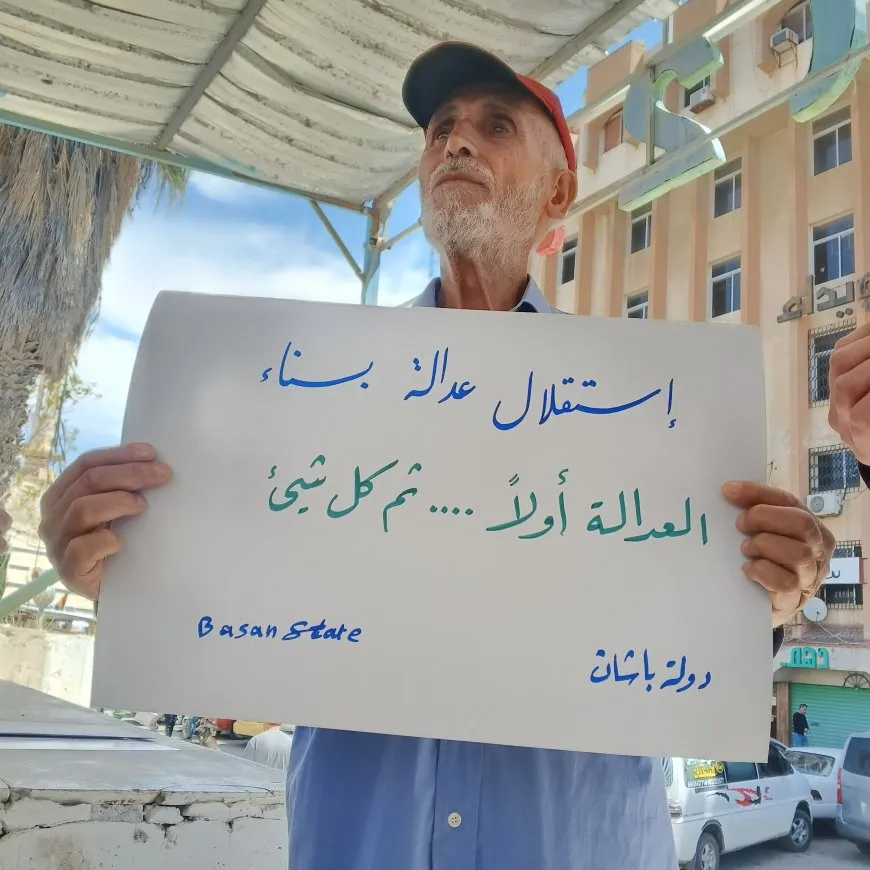 إستقلال عدالة بناء
العدالة أولاً .... ثم كل شيئ
Basan State
دولة باشان